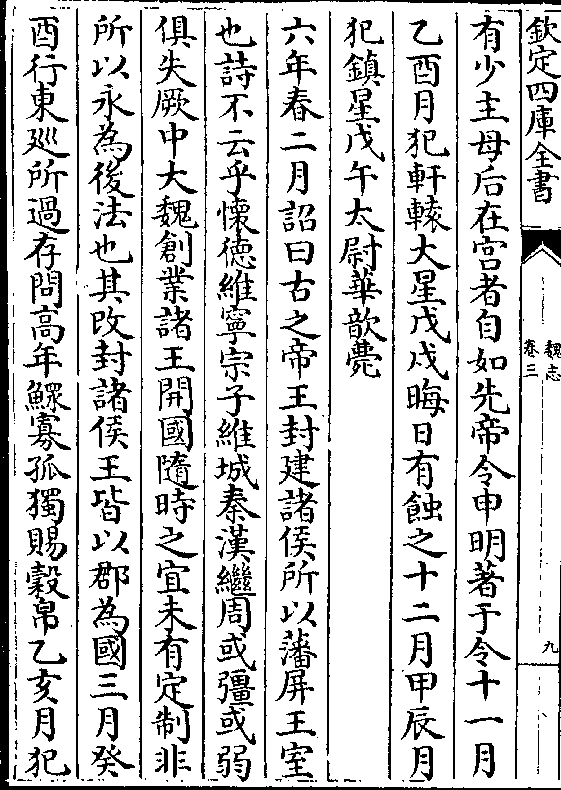 欽定四庫全書
魏志
卷三
九
有少主母后在宫者自如先帝令申明著于令十一月
乙酉月犯軒轅大星戊戌晦日有蝕之十二月甲辰月
犯鎮星戊午太尉華歆薨
六年春二月詔曰古之帝王封建諸侯所以藩屏王室
也詩不云乎懷徳維寧宗子維城秦漢繼周或彊或弱
俱失厥中大魏創業諸王開國隨時之宜未有定制非
所以永為後法也其改封諸侯王皆以郡為國三月癸
酉行東廵所過存問高年鰥寡孤獨賜穀帛乙亥月犯